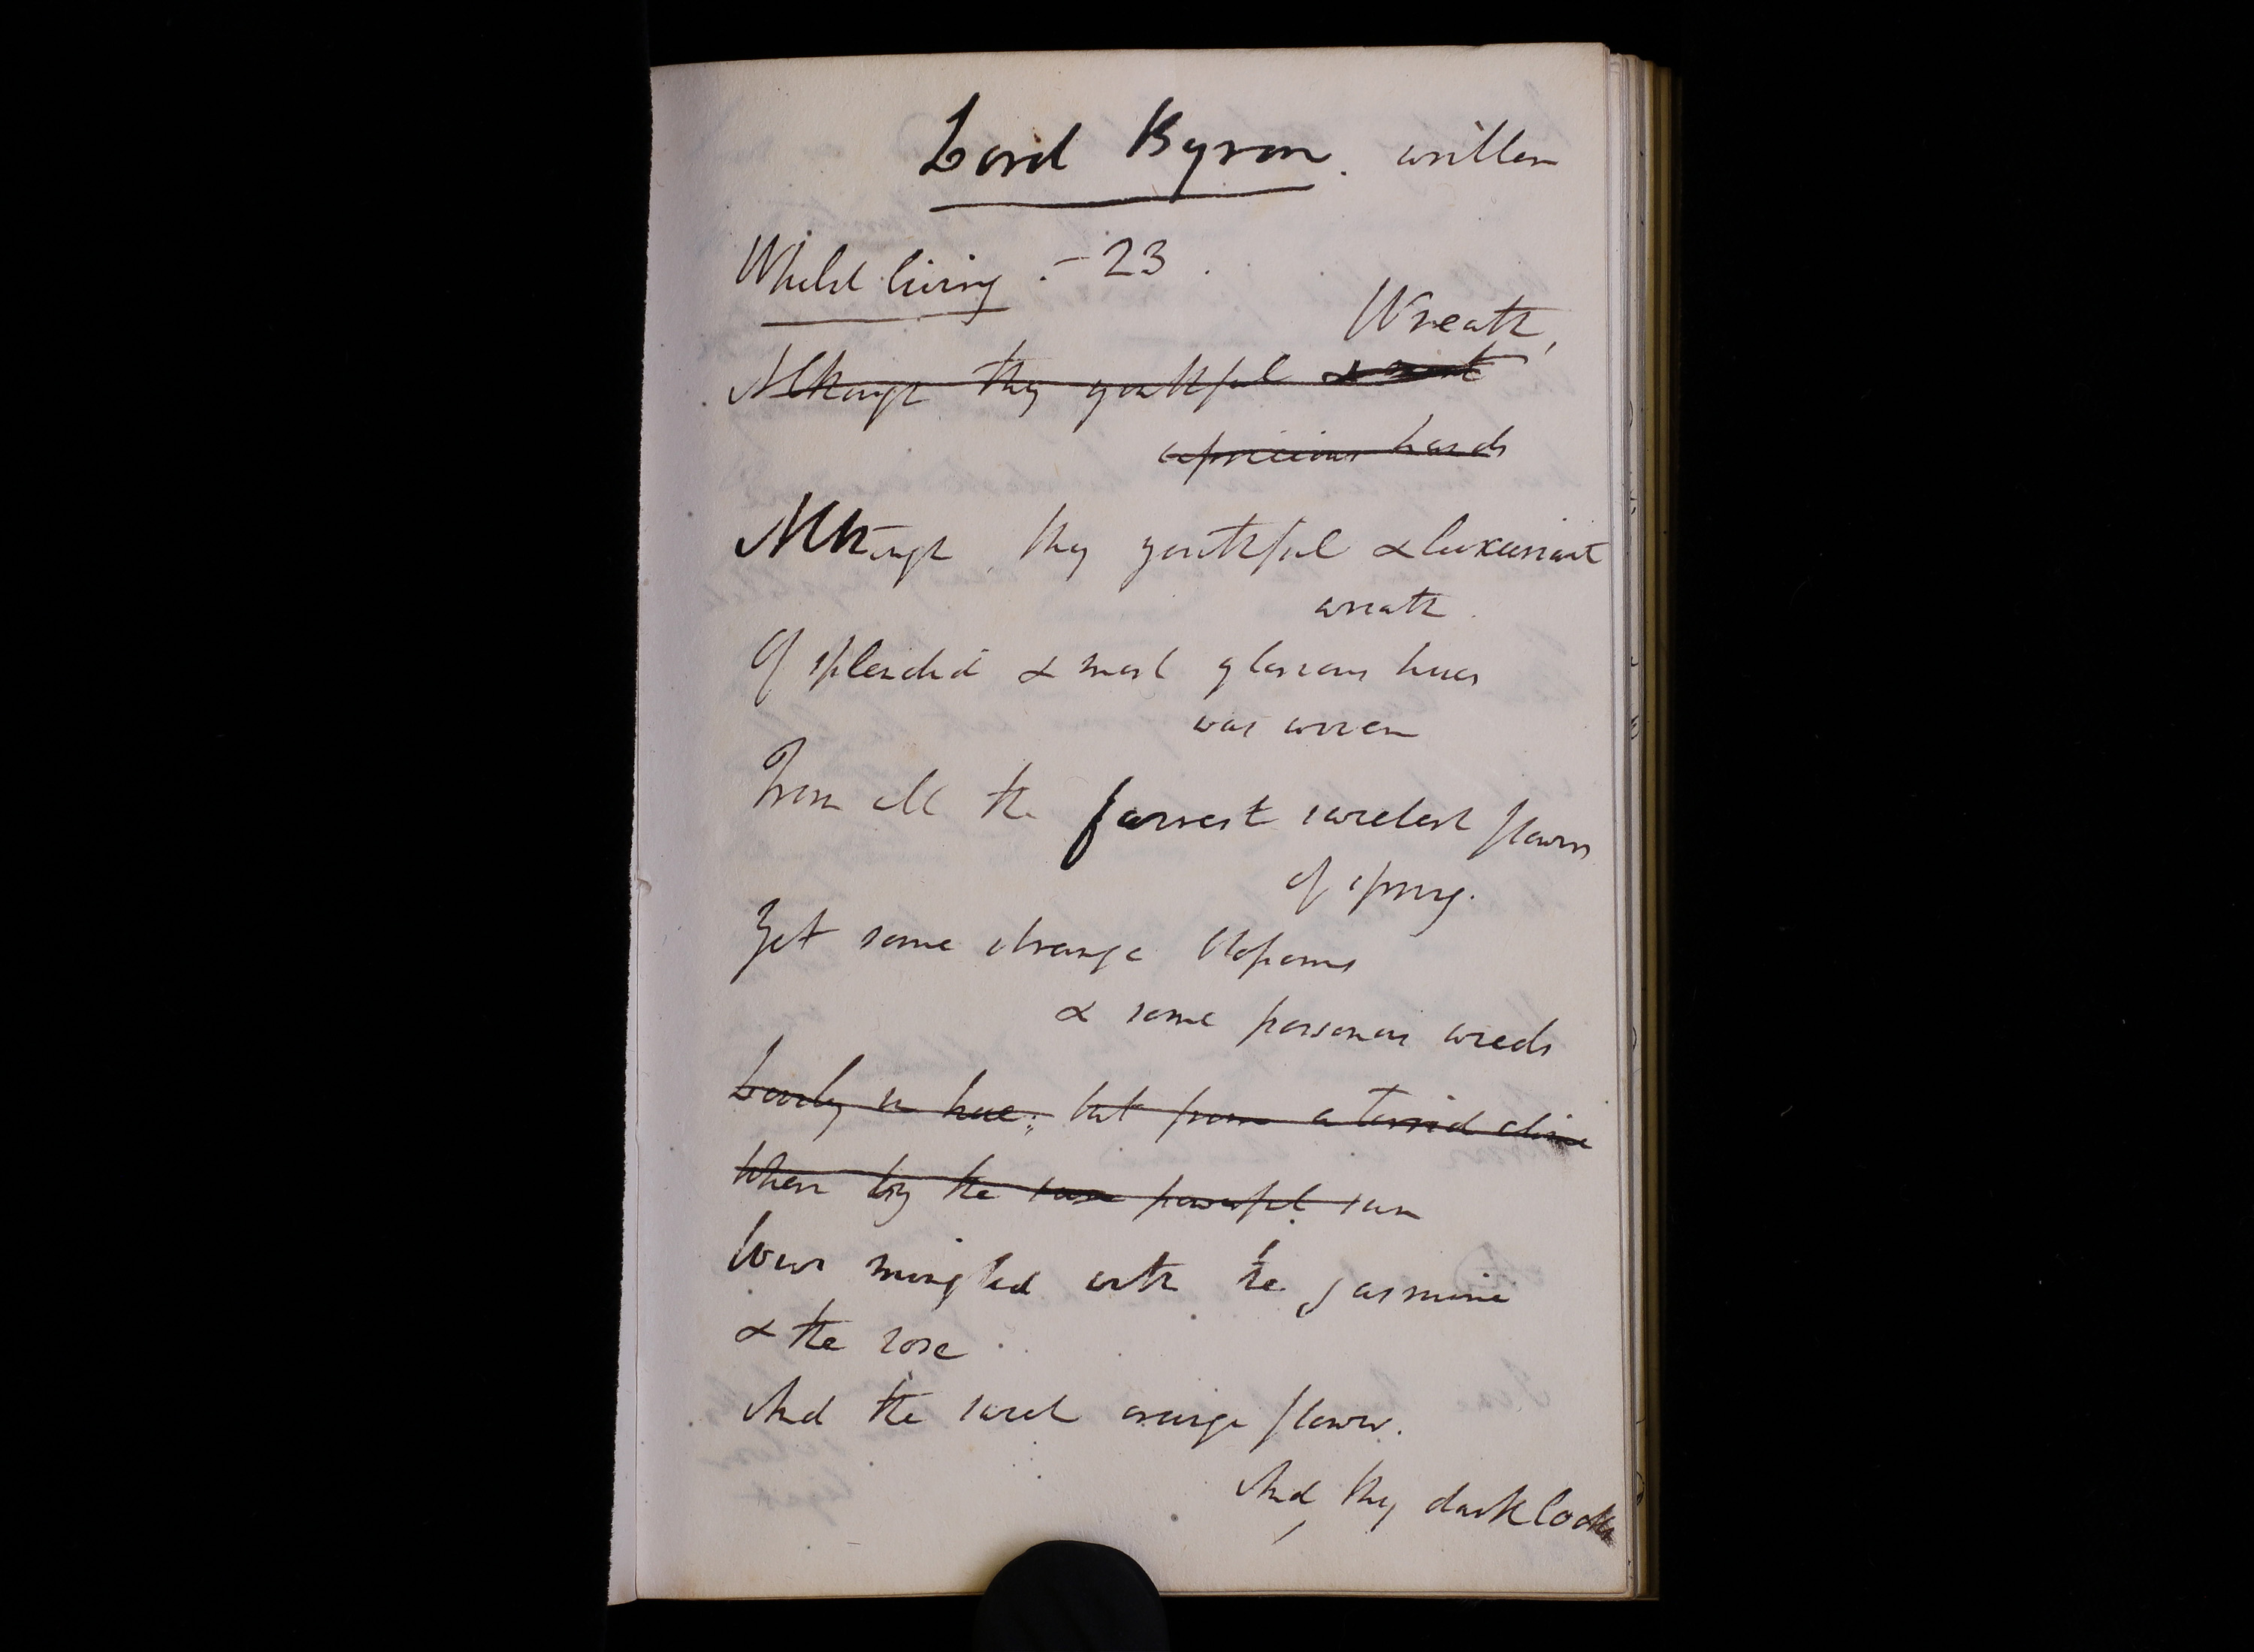 Lord Byron. written
Whilst living. - 23.
Wreath,
Although thy youthful &
capricious hands
Although thy youthful & luxuriant
wreath.
Of splendid & most glorious hues
was woven
From all the fairest sweetest flowers
of spring.
Yet some strange blossoms
& some poisonous weeds
Lovely in hue; but from a torrid clime
When by the powerful sun
Were mingled with the jasmine
& the rose
And the sweet orange flower.
And, thy dark locks